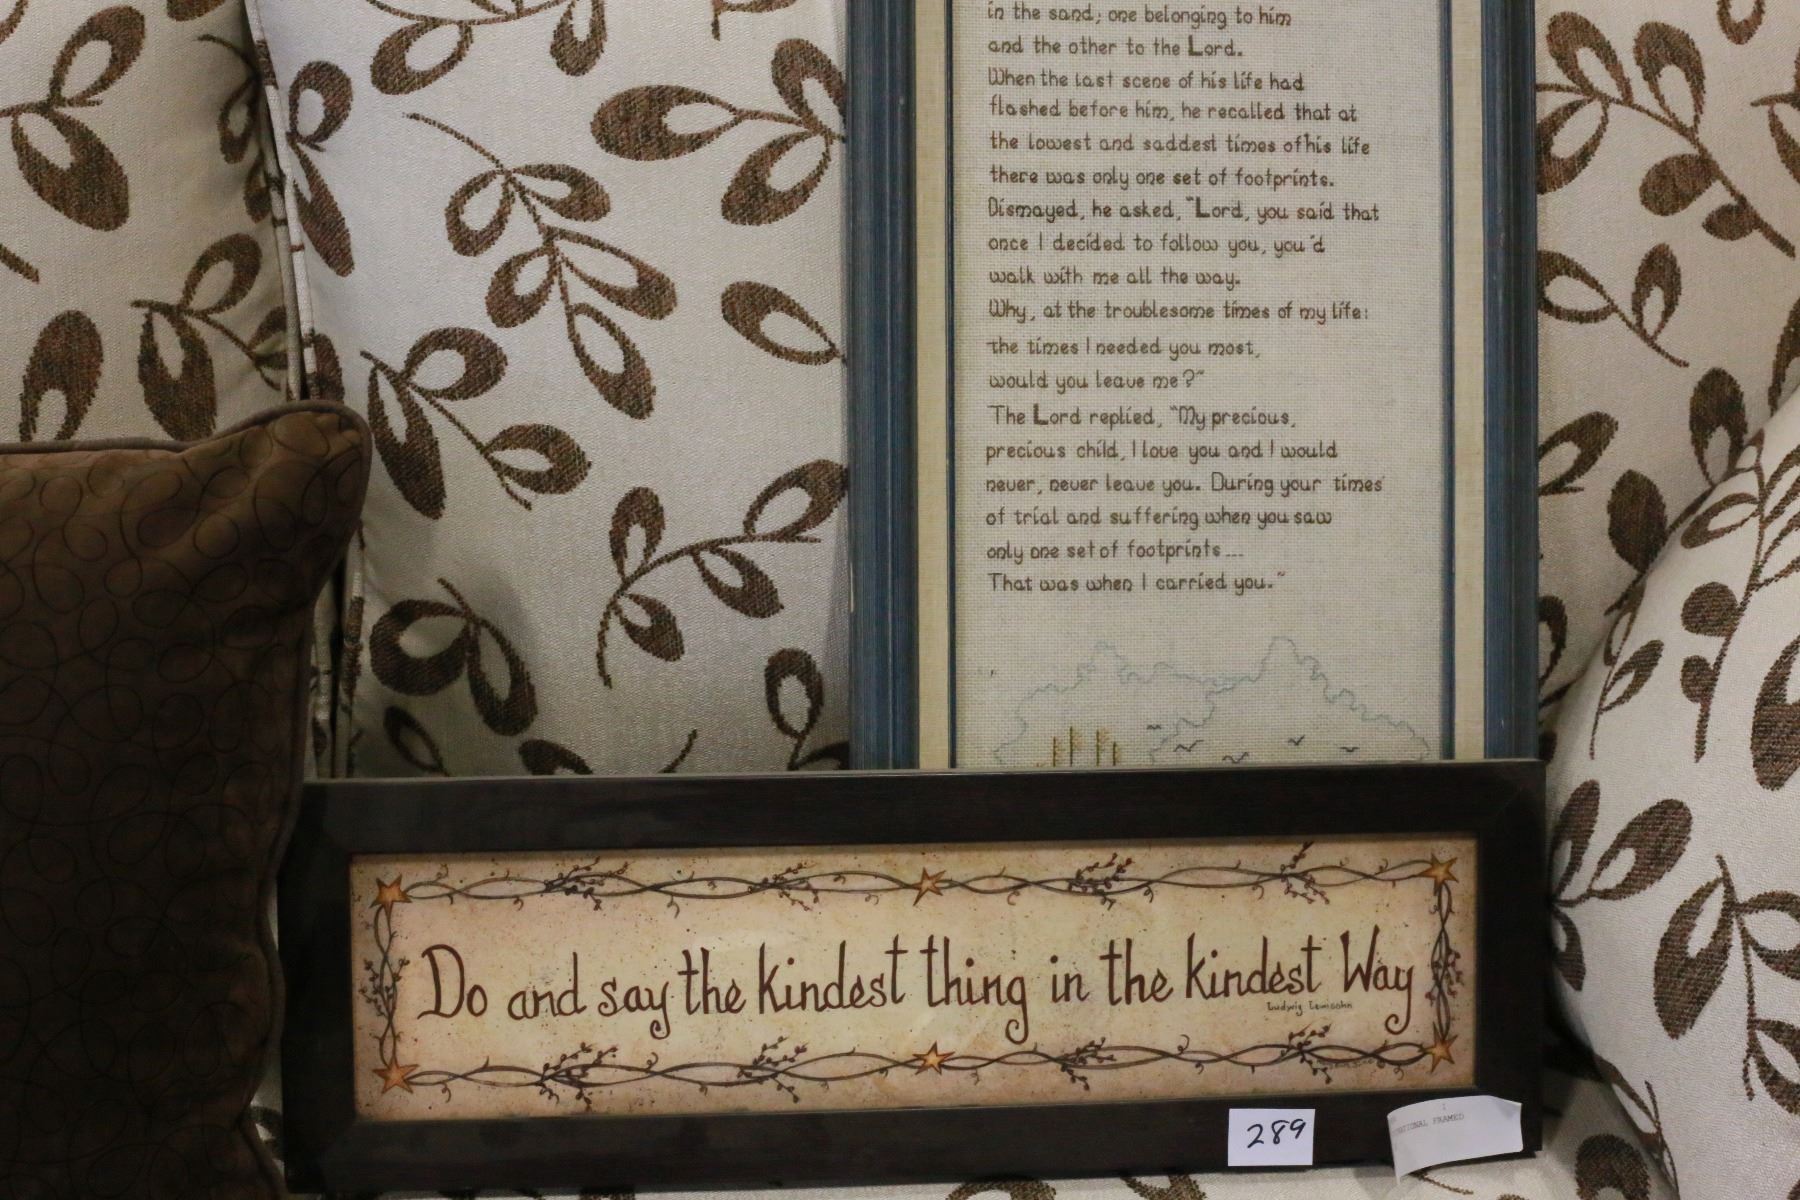 in the sand; one belonging to him
and the other to the Lord.
When the last scene of his life had
flashed before him, he recalled that at
the lowest and saddest times of his life
there was only one set of footprints.
Dismayed, he asked, "Lord, you said that
once I decided to follow you, you'd
walk with me all the way.
Why, at the troublesome times of my life:
the times I needed you most,
would you leave me?"
The Lord replied, "My precious,
precious child, I love you and I would
never, never leave you. During your times
of trial and suffering when you saw
only one set of footprints...
That was when I carried you."
Do and say the kindest thing in the kindest Way
Ludwig Lewisohn
289
FRAMED